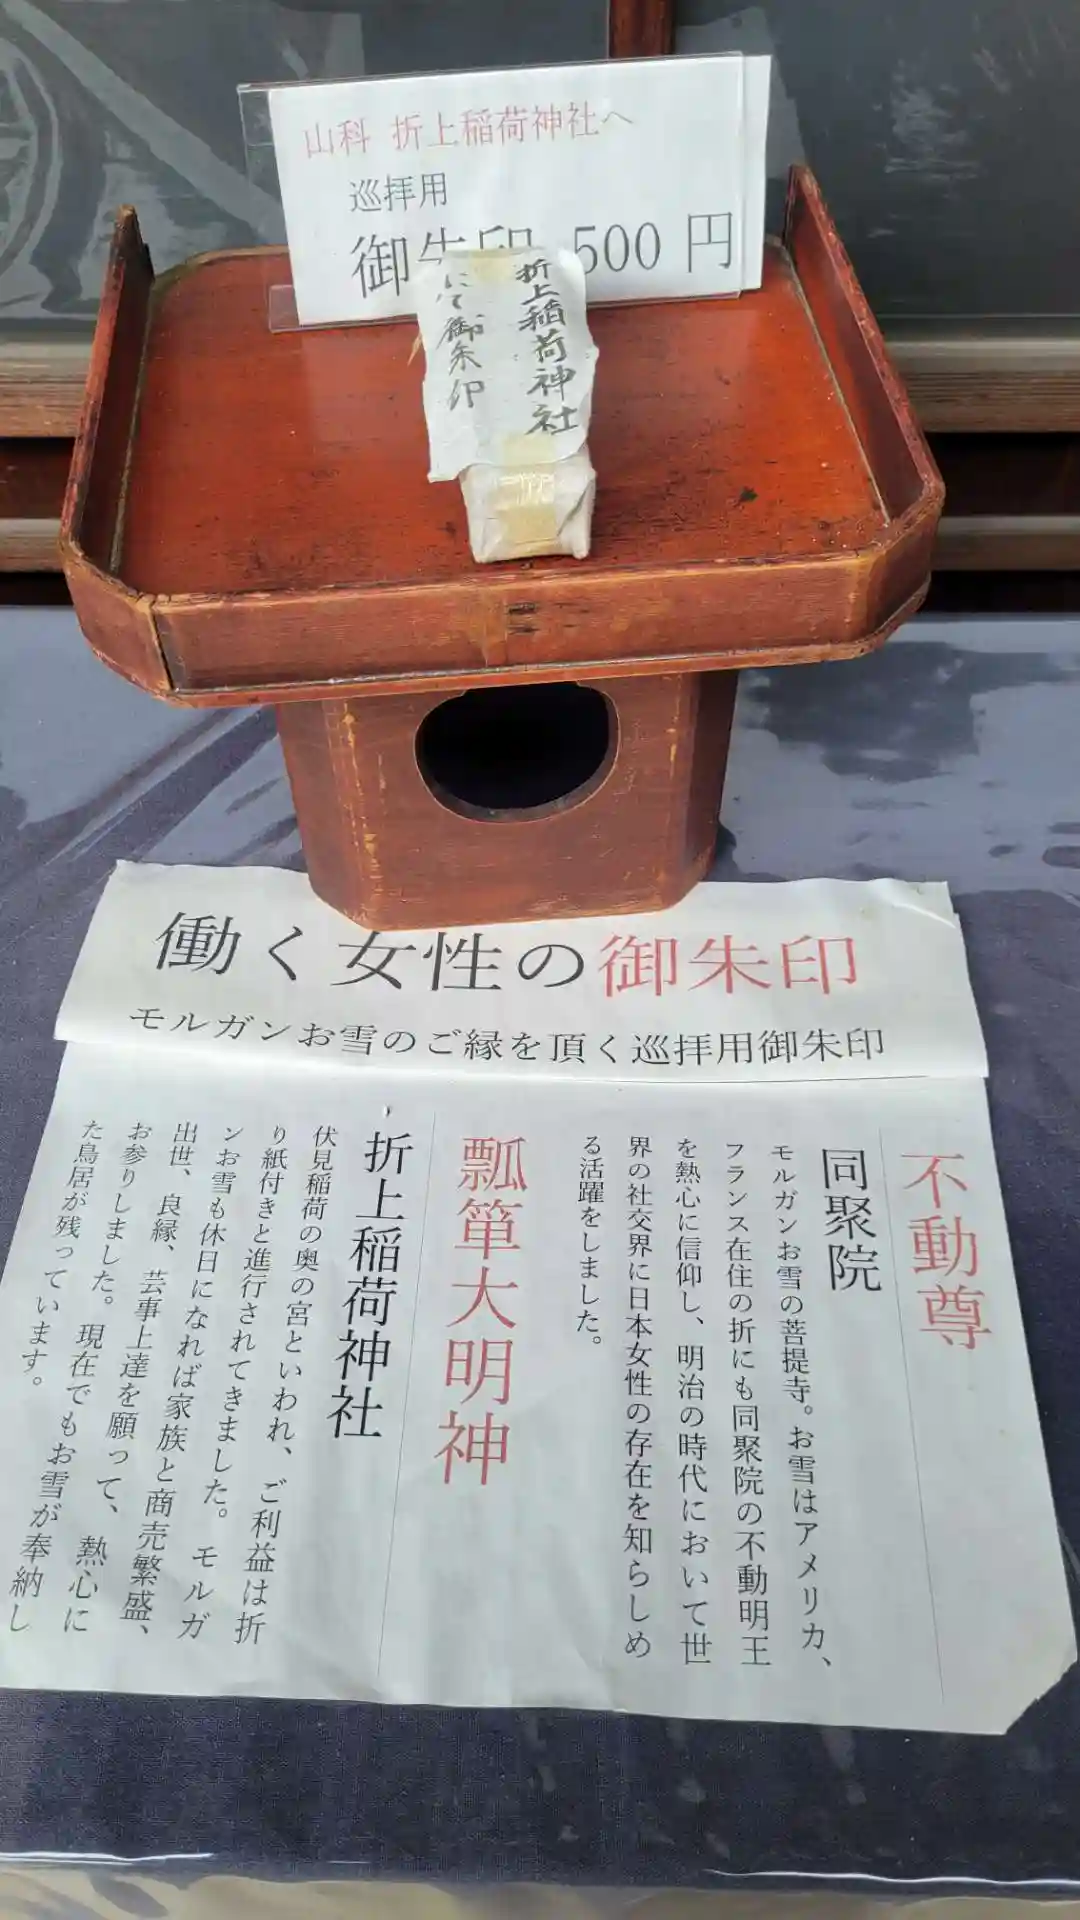 山科 折上稲荷神社へ
巡拝用
御朱印 500 円
折上稲荷神社
にて御朱印
働く女性の御朱印
モルガンお雪のご縁を頂く巡拝用御朱印
不動尊
同聚院
モルガンお雪の菩提寺。お雪はアメリカ、
フランス在住の折にも同聚院の不動明王
を熱心に信仰し、明治の時代において世
界の社交界に日本女性の存在を知らしめ
る活躍をしました。
瓢箪大明神
折上稲荷神社
伏見稲荷の奥の宮といわれ、ご利益は折
り紙付きと進行されてきました。モルガ
ンお雪も休日になれば家族と商売繁盛、
出世、良縁、芸事上達を願って、熱心に
お参りしました。現在でもお雪が奉納し
た鳥居が残っています。